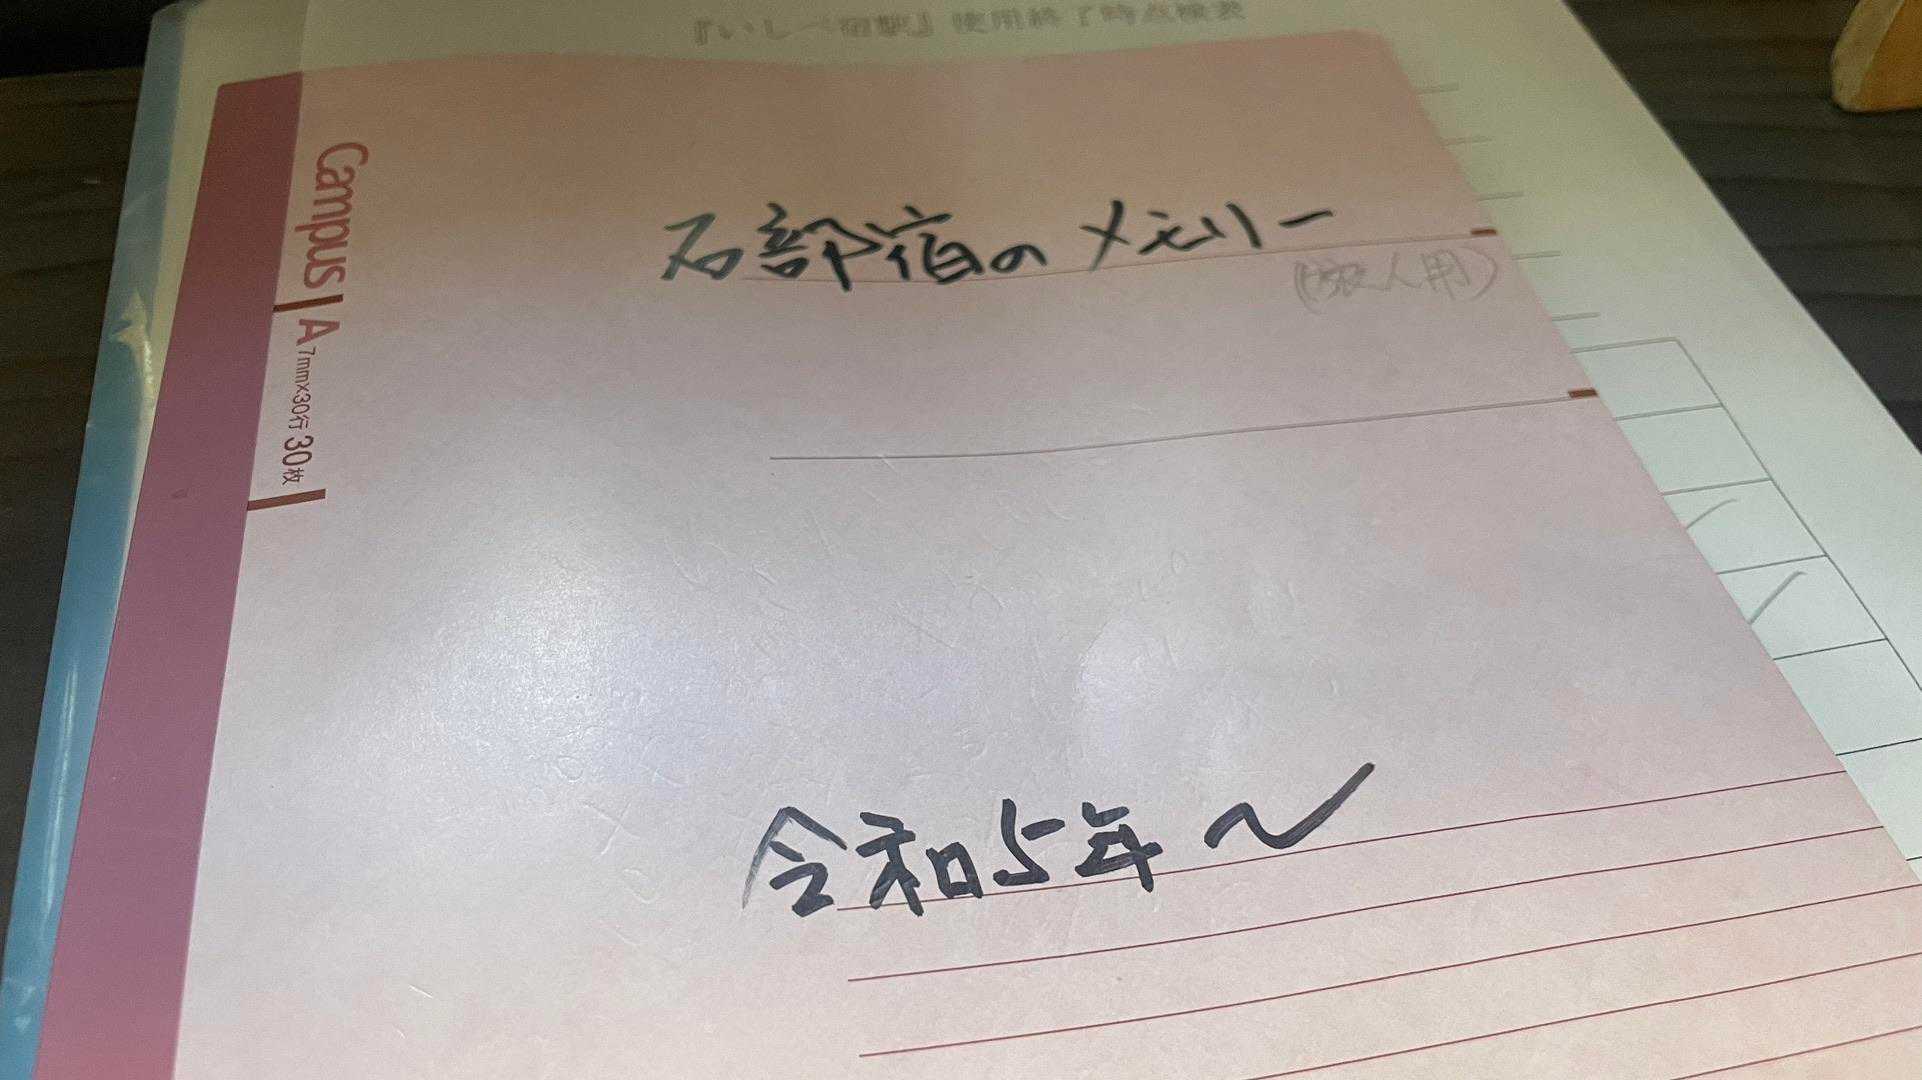 『いしべ宿駅』使用終了時点検表
石部宿のメモリー
(旅人用)
Campus A 7mm×30行 30枚
令和5年～